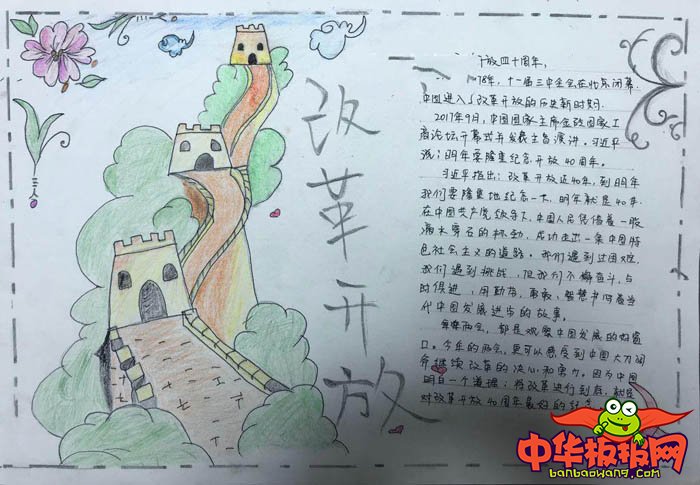 改革开放
放四十周年，
1978年，十一届三中全会在北京闭幕.
中国进入了改革开放的历史新时期.
2017年9月，中国国家主席金砖国家工
商论坛开幕式并发表主旨演讲. 习近平
说：明年要隆重纪念开放40周年。
习近平指出：改革开放近40年，到明年
我们要隆重地纪念一下，明年就是40年.
在中国共产党领导下，中国人民凭借着一股
滴水穿石的劲，成功走出一条中国特
色社会主义的道路。我们遇到过困难，
我们遇到挑战，但我们不懈奋斗，与
时俱进，用勤劳、勇敢、智慧书写着当
代中国发展进步的故事。
每年两会，都是观察中国发展的好窗
口。今年的两会，更可以感受到中国大刀阔
斧继续改革的决心和努力。因为中国
明白一个道理：将改革进行到底，就是
对改革开放40周年最好的纪念
中华板报网
banbaowang.com